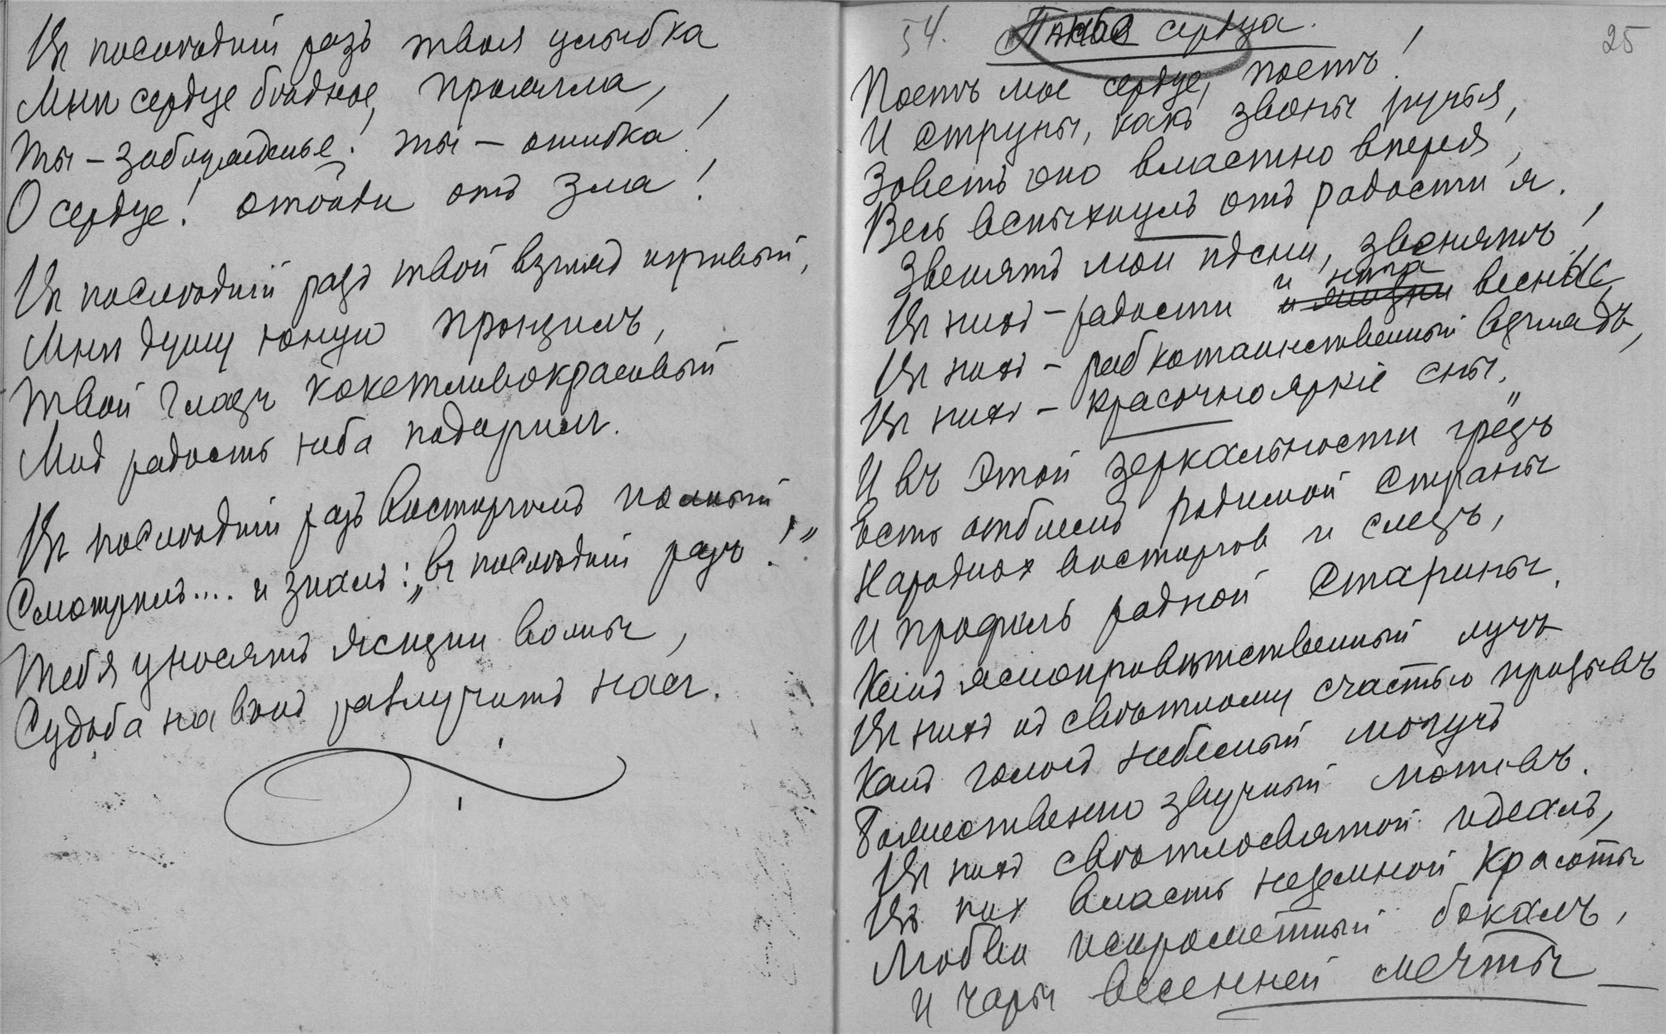 Въ послѣдній разъ твоя улыбка
Мнѣ сердце бѣдное прожгла,
Ты – заблужденье! ты – ошибка!
О сердце! отойди отъ зла!
Въ послѣдній разъ твой взглядъ игривый,
Мнѣ душу юную пронзилъ,
Твой глазъ кокетливокрасивый
Мнѣ радость неба подарилъ.
Въ послѣдній разъ восторгомъ полный
Смотрѣлъ.... и зналъ: „въ послѣдній разъ!“
Тебя уносятъ жизни волны,
Судьба на вѣкъ разлучитъ насъ.
54. сердца. 25
Поетъ мое сердце, поетъ!
И струны, какъ звоны ручья,
Зоветъ оно властно впередъ,
Весь вспыхнулъ отъ радости я.
Звенятъ мои пѣсни, звенятъ!
Въ нихъ – радости и нѣга весны,
Въ нихъ – робкотаинственный взглядъ,
Въ нихъ – красочнояркіе сны.
И въ этой зеркальности грёзъ
Есть отблескъ родимой страны
Народных восторгов и слезъ,
И профиль родной старины.
Какъ яснопривѣтственный лучъ
Въ нихъ къ свѣтлому счастью призывъ
Какъ голосъ небесный могучъ
Божественно звучный мотивъ.
Въ нихъ свѣтлосвятой идеалъ,
Въ них власть неземной красоты
Любви искрометный бокалъ,
И чары весенней мечты